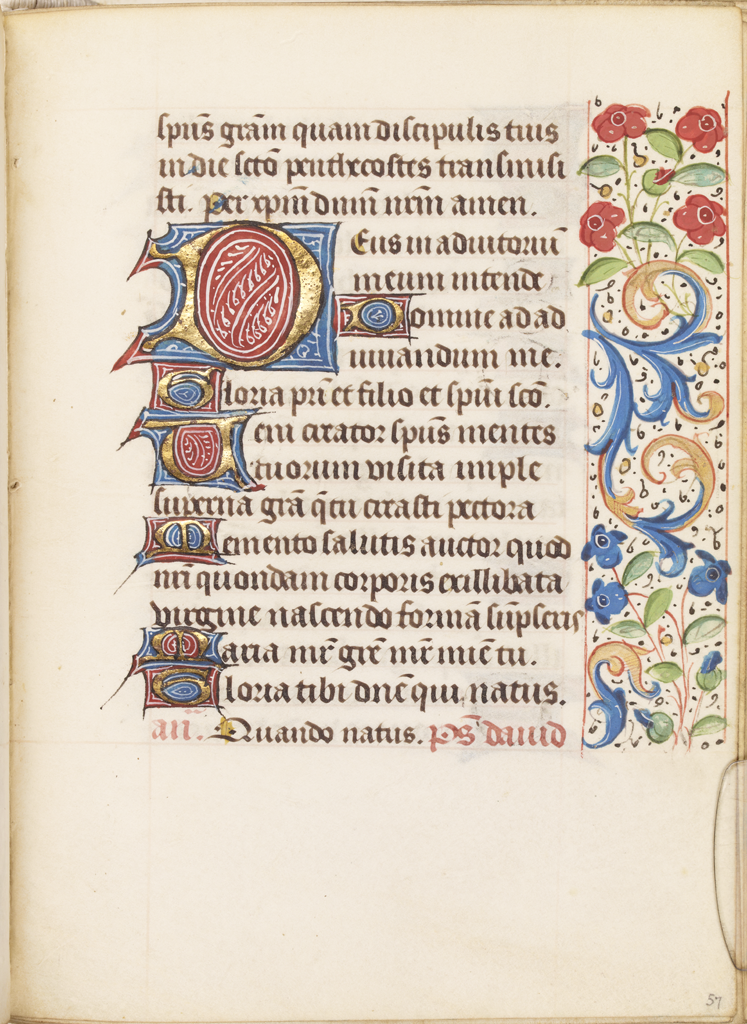 sp̄us grām quam discipulis tuis
in die sc̄to penthecostes transmisi
sti. Per xp̄m dn̄m nr̄m amen.
Deus in adiutoriū
meum intende
Domine ad ad
iuuandum me.
Gloria pr̄i et filio et sp̄ui sc̄o.
Veni creator sp̄us mentes
tuorum visita imple
superna grā q̄ tu creasti pectora
Memento salutis auctor quod
nr̄i quondam corporis exillibata
virgine nascendo formā sūpseris
Maria mr̄ grē mr̄ mīe tu.
Gloria tibi dn̄e qui natus.
an̄. Quando natus. p̄s dauid
57